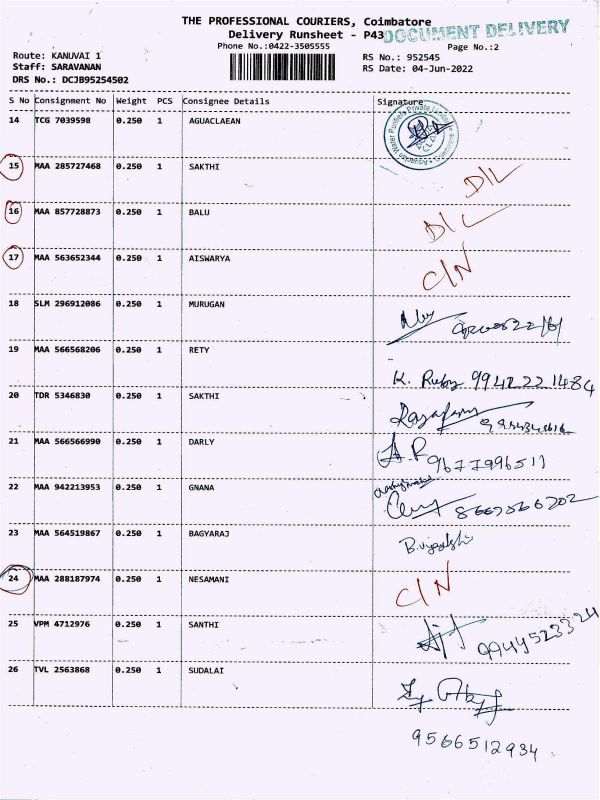 THE PROFESSIONAL COURIERS, Coimbatore
Delivery Runsheet - P43
DOCUMENT DELIVERY
Phone No.:0422-3505555
Page No.:2
Route: KANUVAI 1
RS No.: 952545
Staff: SARAVANAN
RS Date: 04-Jun-2022
DRS No.: DCJB95254502
S No Consignment No Weight PCS Consignee Details Signature
14 TCG 7039598 0.250 1 AGUACLAEAN
15 MAA 285727468 0.250 1 SAKTHI D/L
16 MAA 857728873 0.250 1 BALU D/L
17 MAA 563652344 0.250 1 AISWARYA C/N
18 SLM 296912086 0.250 1 MURUGAN
19 MAA 566568206 0.250 1 RETY K. Ruby 9942221484
20 TDR 5346830 0.250 1 SAKTHI
21 MAA 566566990 0.250 1 DARLY A.P 9677996511
22 MAA 942213953 0.250 1 GNANA
23 MAA 564519867 0.250 1 BAGYARAJ
24 MAA 288187974 0.250 1 NESAMANI C/N
25 VPM 4712976 0.250 1 SANTHI 9944523324
26 TVL 2563868 0.250 1 SUDALAI
9566512934